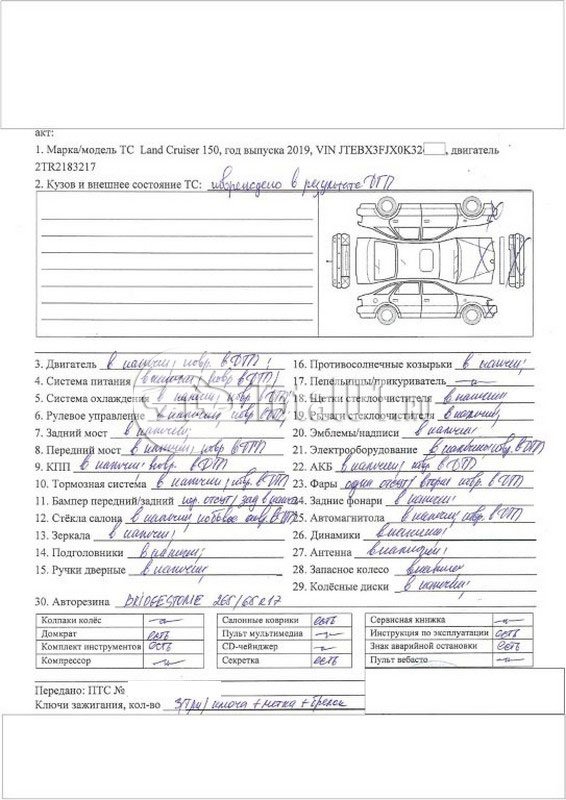 акт:
1. Марка/модель ТС Land Cruiser 150, год выпуска 2019, VIN JTEBX3FJX0K32 , двигатель
2TR2183217
2. Кузов и внешнее состояние ТС: повреждено в результате ДТП
3. Двигатель в наличии, повр. в ДТП;
4. Система питания в наличии, повр в ДТП;
5. Система охлаждения в наличии, повр. в ДТП;
6. Рулевое управление в наличии, повр в ДТП;
7. Задний мост в наличии;
8. Передний мост в наличии, повр в ДТП
9. КПП в наличии повр. в ДТП;
10. Тормозная система в наличии, повр. в ДТП;
11. Бампер передний/задний пер. отсут/ зад в наличии
12. Стёкла салона в наличии лобовое повр. в ДТП
13. Зеркала в наличии;
14. Подголовники в наличии;
15. Ручки дверные в наличии;
16. Противосолнечные козырьки в наличии;
17. Пепельницы/прикуриватель
18. Щётки стеклоочистителя в наличии
19. Рычаги стеклоочистителя в наличии;
20. Эмблемы/надписи в наличии;
21. Электрооборудование в наличии повр. в ДТП
22. АКБ в наличии, повр. в ДТП;
23. Фары одна отсут/ вторая повр. в ДТП
24. Задние фонари в наличии;
25. Автомагнитола в наличии, повр. в ДТП;
26. Динамики в наличии;
27. Антенна в наличии;
28. Запасное колесо в наличии
29. Колёсные диски в наличии;
30. Авторезина BRIDGESTONE 265/65 R17
Колпаки колёс
Домкрат есть
Комплект инструментов есть
Компрессор
Салонные коврики есть
Пульт мультимедиа
CD-чейнджер
Секретка есть
Сервисная книжка
Инструкция по эксплуатации есть
Знак аварийной остановки есть
Пульт вебасто
Передано: ПТС №
Ключи зажигания, кол-во 3(три) ключа + метка + брелок